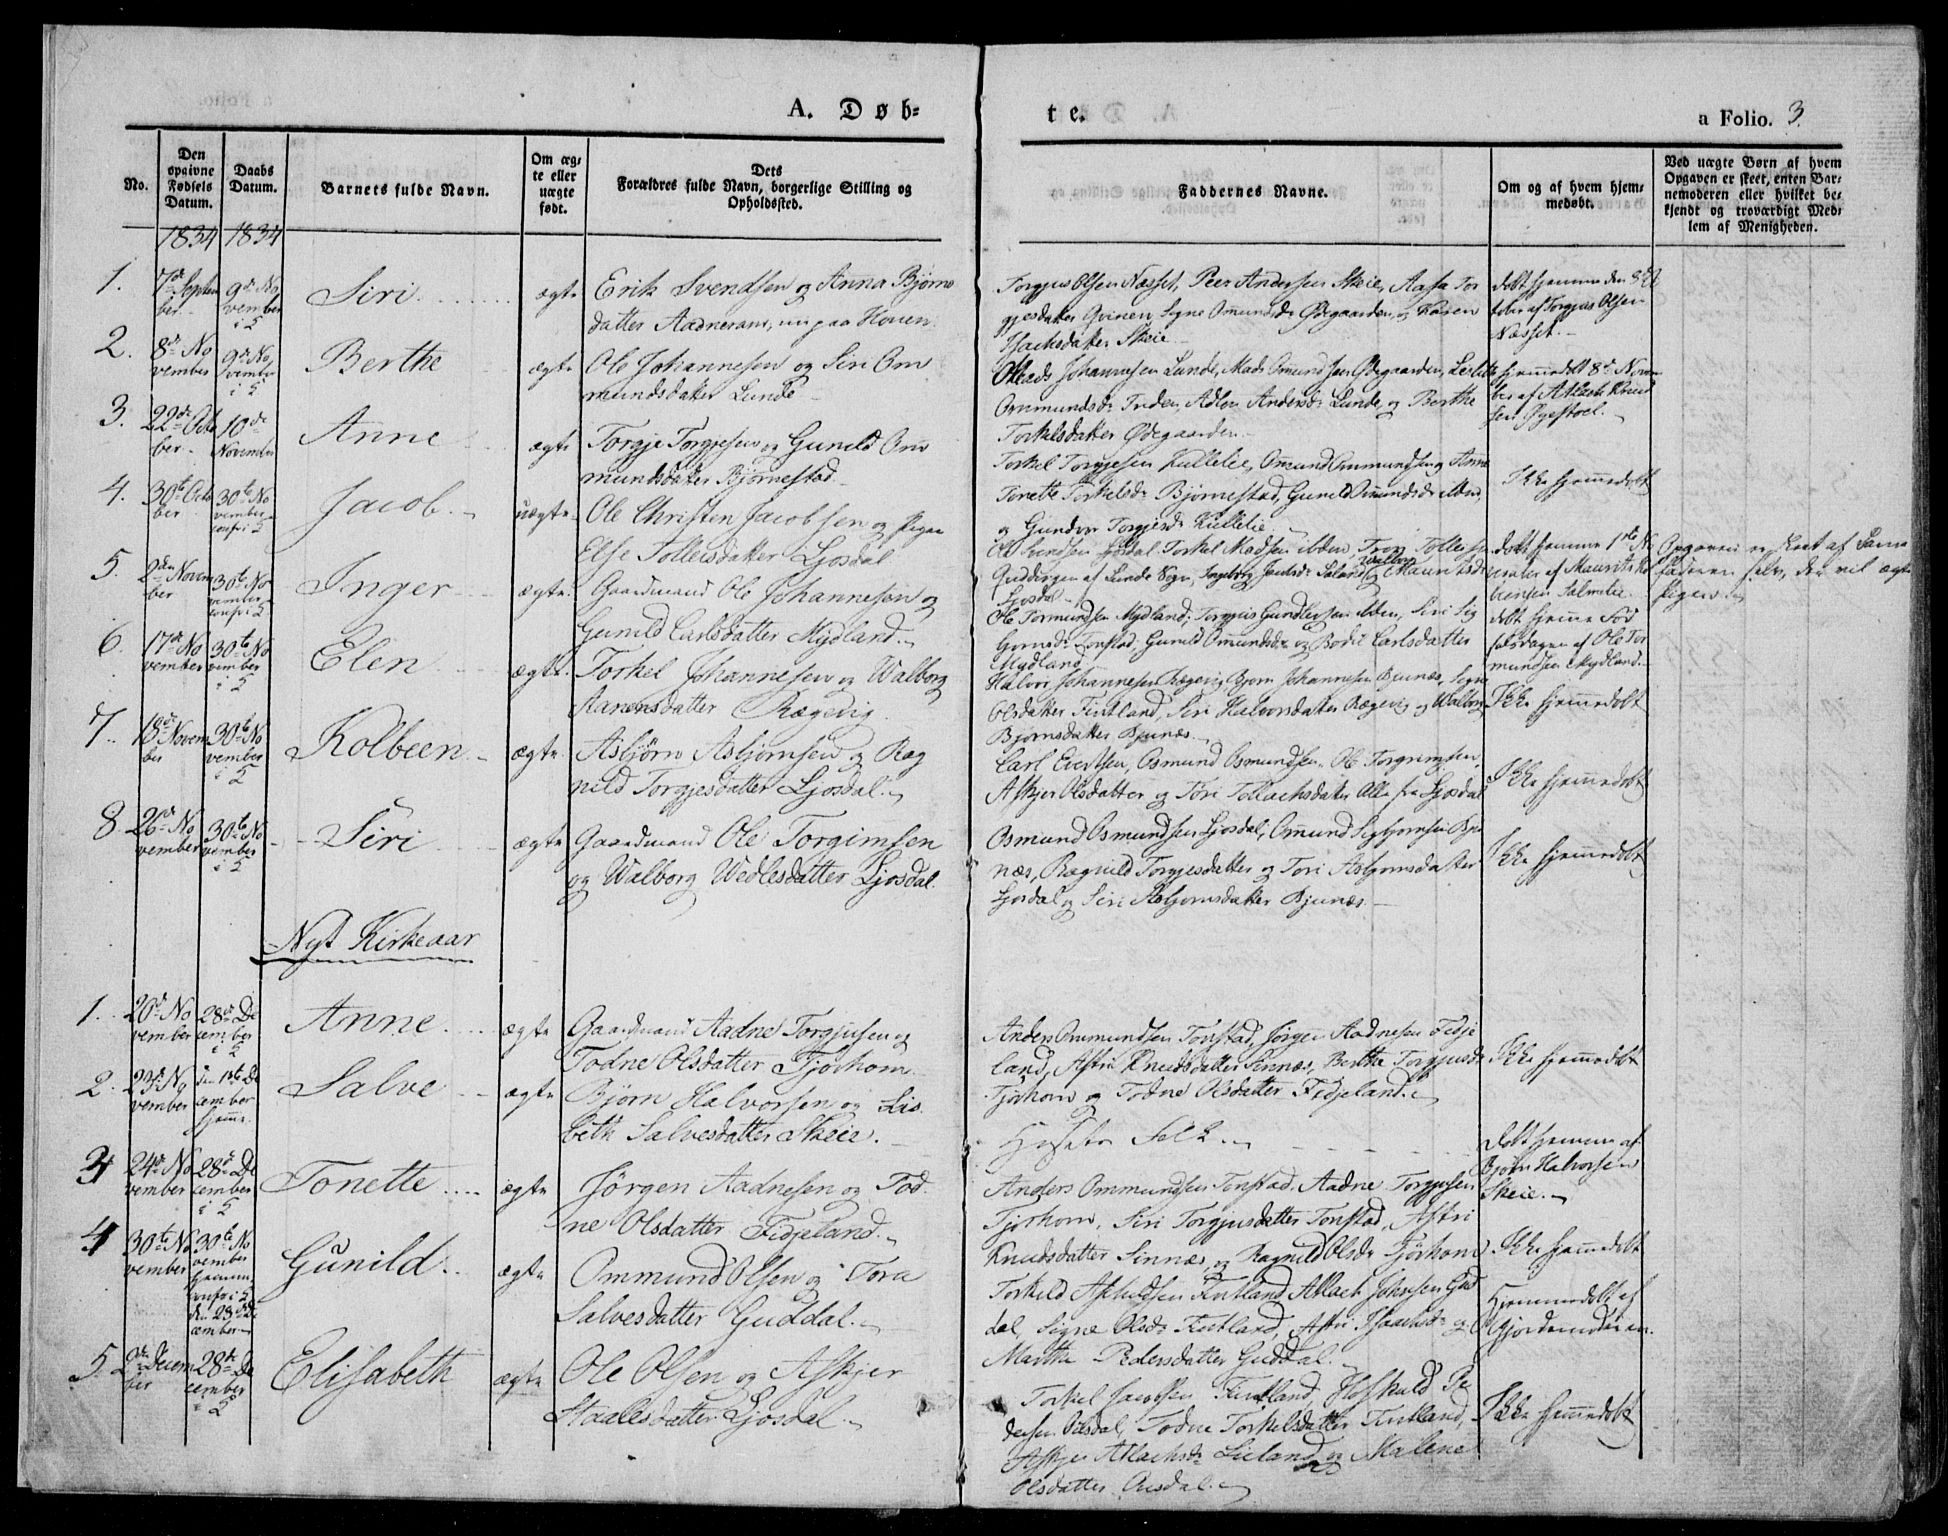 A. Døb=
te.
a Folio. 3.
No.
Den opgivne Fødsels Datum.
Daabs Datum.
Barnets fulde Navn.
Om æg=
te eller
uægte
født.
Dets
Forældres fulde Navn, borgerlige Stilling og
Opholdssted.
Faddernes Navne.
Om og af hvem hjem=
medøbt.
Ved uægte Børn af hvem
Opgaven er skeet, enten Bar=
nemoderen eller hvilket be=
kjendt og troværdigt Med=
lem af Menigheden.
1834 1834
1. 7de Septem
ber
9de No
vember
i 5
Siri
ægte
Erik Svendsen og Anna Bjørns
datter Aadneram, nu paa Hoven
Torgjus Olsen Næsset, Peer Andersen Skeie, Aasa Tor
gjesdatter Qvinen, Signe Omundsdr Ødegaarden, og Karen
Isachsdatter Skeie
døbt hjemme den 8de
af Torgjus Olsen
Næsset.
2. 8de No
vember
9de No
vember
i 5
Berthe
ægte
Ole Johannesen og Siri Om
mundsdatter Lunde
Johannesen Lunde, Mads Omundsen Ødegaarden,
Ommundsdr Adlou Andersdr Lunde, og Berthe
Torkelsdatter Ødegaarden
hjemmedøbt 8de Novem
ber af Atlach Knud
sen
3. 22de Octo
ber
10de
November
Anne
ægte
Torgje Torgjesen og Gunild Om
mundsdatter Bjørnestad
Torkel Torgjesen Kullelie, Omund Ommundsen og Anne
Tonette Torkelsdr Bjørnestad, Gunild Omundsdr ibden,
og Gundvor Torgjesdr Kullelie
Ikke hjemmedøbt
4. 30te Octo
ber
30te No
vember
confr i 5
Jacob
uægte
Ole Christen Jacobsen og Pigen
Else Tollefsdatter Ljosdal
Ole Svendsen Ljosdal, Torkel Madsen ibden, Tron Tollefsen
Guddingen af Lunde Sogn, Ingeborg
Ljosdal
døbt hjemme 1ste No
vember af Maurits
Salmelie
Opgaven er skeet af Barne
faderen selv, der vil ægte
Pigen
5. 2den Novem
ber
30te No
vember
confr i 5
Inger
ægte
Gaardmand Ole Johannesen og
Gunild Carlsdatter Mydland
Ole Tormundsen Mydland, Torgjus Gundersen ibden, Siri Sig
Tonstad, Gunild Omundsdr og Bodil Carlsdatter
Mydland
døbt hjemme Fød
selsdagen af Ole Tor
mundsen Mydland
6. 17de No
vember
30te No
vember
i 5
Elen
ægte
Torkel Johannesen og Walborg
Aanensdatter Rægevig
Halvor Johannesen Rægevig, Bjørn Johannesen Bjunæs, Signe
Olsdatter Fintland, Siri Halvorsdatter Rægevig og Walborg
Bjørnsdatter Bjunæs
Ikke hjemmedøbt
7. 18de Novem
ber
30te No
vember
i 5
Kolbeen
ægte
Asbjørn Asbjørnsen og Rag
nild Torgjesdatter Ljosdal
Carl Evertsen, Osmund Osmundsen, Ole Torgrimsen,
Askjer Olsdatter og Tori Tollachsdatter Alle fra Ljosdal
Ikke hjemmedøbt
8. 26de No
vember
30te No
vember
i 5
Siri
ægte
Gaardmand Ole Torgimsen
og Walborg Wedlesdatter Ljosdal
Osmund Osmundsen Ljosdal, Omund Sigbjørnsen Bju
næs, Ragnild Torgjesdatter og Tori Asbjørnsdatter
Ljosdal og Siri Asbjørnsdatter Bjunæs
Ikke hjemmedøbt
Nyt Kirkeaar
1. 20de No
vember
28de De
cember
i 5
Anne
ægte
Gaardmand Aadne Torgjusen og
Todne Olsdatter Tjørhom
Anders Ommundsen Tonstad, Jørgen Aadnesen Fidje
land, Astri Knudsdatter Sinnæs, Berthe Torgjusdr
Tjørhom og Todne Olsdatter Fidjeland
Ikke hjemmedøbt
2. 23de No
vember
den 1ste De
cember
hjemme
Salve
ægte
Bjørn Halvorsen og Lis
beth Salvesdatter Skeie
døbt hjemme af
Bjørn Halvorsen
Skeie
3 24de No
vember
28de De
cember
i 5
Tonette
ægte
Jørgen Aadnesen og Tod
ne Olsdatter Fidjeland
Anders Ommundsen Tonstad, Aadne Torgjusen
Tjørhom, Siri Torgjusdatter Tonstad, Astri
Knudsdatter Sinnæs og Ragnild Olsdr Tjørhom
Ikke hjemmedøbt
4 30te No
vember
30te No
vember
hjemme,
confr i 5
den 28de De
cember
Gunild
ægte
Ommund Olsen og Tora
Salvesdatter Guddal
Torkild Fintland, Atlach Johnsen Gud
dal, Signe Olsdr Fintland, Astri Isaachsdr og
Marthe Pedersdatter Guddal
Hjemmedøbt af
Gjordemoderen
5. 2den Decem
ber
28de De
cember
i 5
Elisabeth
ægte
Ole Olsen og Askjer
Staalesdatter Ljosdal
Torkel Jacobsen Fintland, Høskuld Pe
dersen Todne Torkelsdatter Fintland,
Askjer Atlachsdr Lieland og Malene
Olsdatter Ousdal
Ikke hjemmedøbt